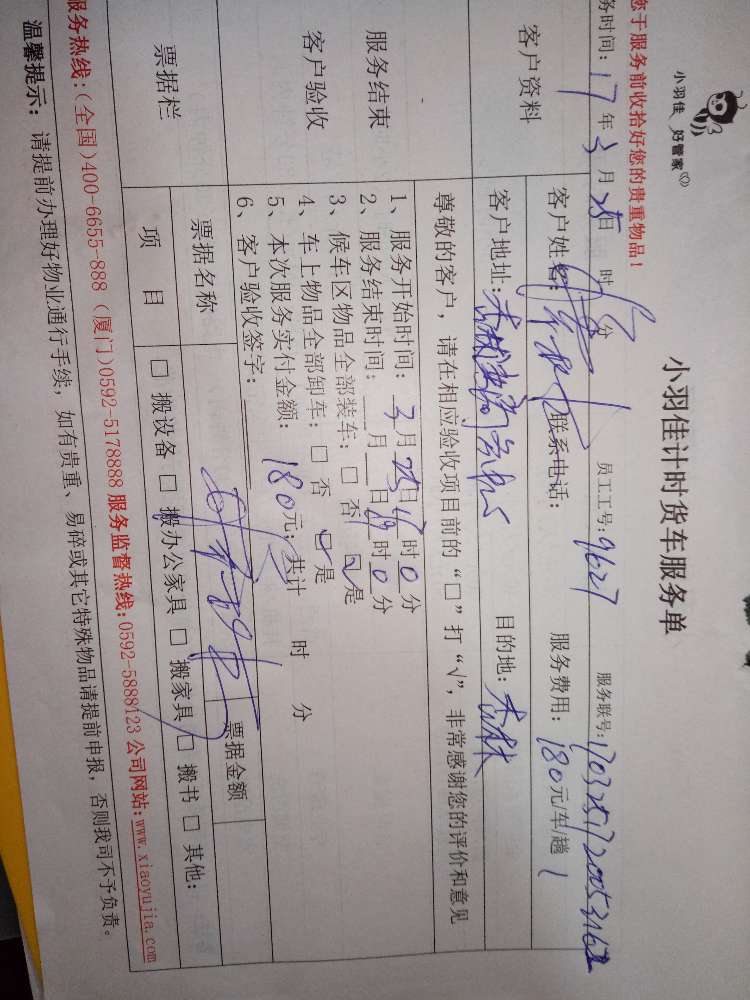 小羽佳 好管家
小羽佳计时货车服务单
您于服务前收拾好您的贵重物品!
务时间: 17 年 3 月 25 日 时 分 员工工号: 9627 服务联号: 1703251720053162
客户资料
客户姓名: 联系电话: 服务费用: 180 元/车/趟 1
客户地址: 目的地: 杏林
尊敬的客户, 请在相应验收项目前的 “□” 打 “√”, 非常感谢您的评价和意见
服务结束
客户验收
1、服务开始时间: 3 月 25 日 17 时 0 分
2、服务结束时间: 月 日 19 时 0 分
3、候车区物品全部装车: □ 否 □ 是
4、车上物品全部卸车: □ 否 □ 是
5、本次服务实付金额: 180 元; 共计 时 分
6、客户验收签字:
票据栏
票据名称 票据金额
项 目 □ 搬设备 □ 搬办公家具 □ 搬家具 □ 搬书 □ 其他:
服务热线:(全国)400-6655-888 (厦门)0592-5178888 服务监督热线:0592-5888123 公司网站:www.xiaoyujia.com
温馨提示: 请提前办理好物业通行手续, 如有贵重、易碎或其它特殊物品请提前申报, 否则我司不予负责。